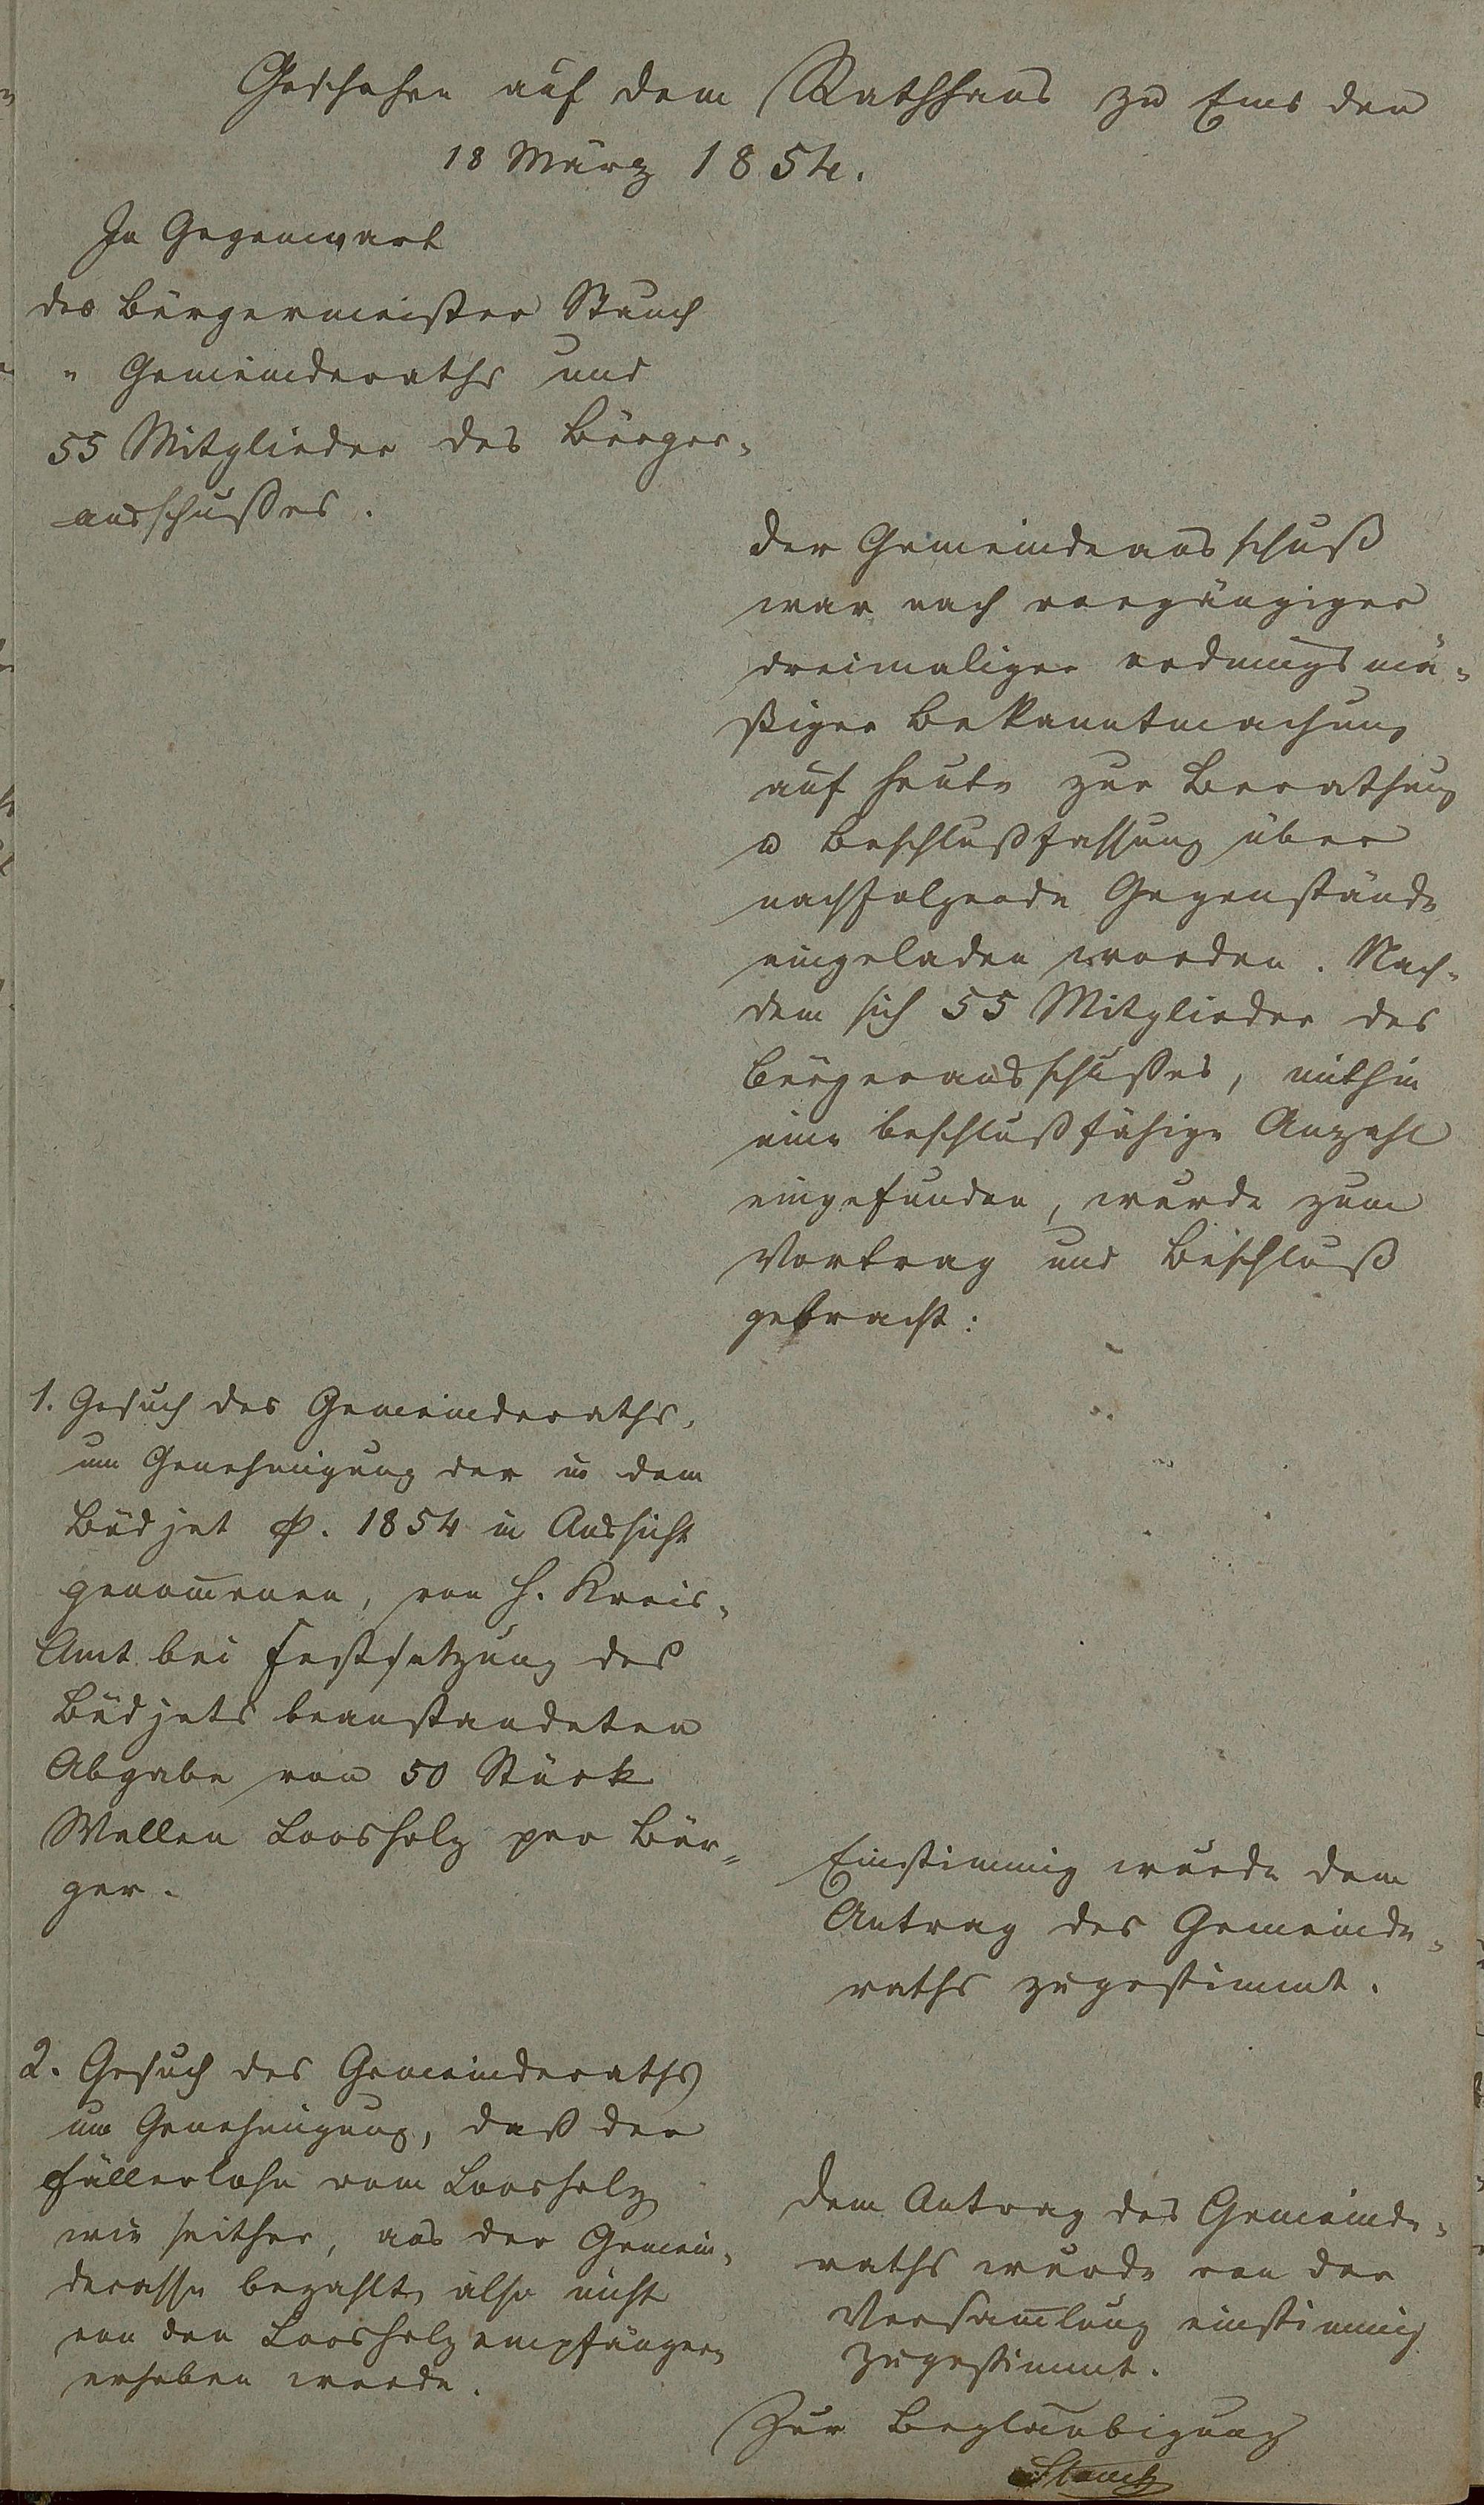 Geschehen auf dem Rathhaus zu Ems den
18 März 1854.
In Gegenwart
des Bürgermeister Stauch
" Gemeinderaths und
55 Mitglieder des Bürger-
ausschußes.
Der Gemeindeausschuß
war nach vorgängiger
dreimaliger ordnungsmä-
ßiger Bekanntmachung
auf heute zur Berathung
u Beschlußfassung über
nachfolgende Gegenstände
eingeladen worden. Nach-
dem sich 55 Mitglieder des
Bürgerausschußes, mithin
eine beschlußfähige Anzahl
eingefunden, wurde zum
Vortrag und Beschluß
gebracht:
1. Gesuch des Gemeinderaths,
um Genehmigung der in dem
Büdjet p. 1854 in Aussicht
genom̅enen, von H. Kreis-
Amt bei Festsetzung des
Büdjets beanstandeten
Abgabe von 50 Stück
Wellen Loosholz per Bür-
ger.
Einstimmig wurde dem
Antrag des Gemeinde-
raths zugestimmt.
2. Gesuch des Gemeinderaths
um Genehmigung, daß der
Fällerlohn vom Loosholz
wie seither, aus der Gemein-
decasse bezahlt, also nicht
von den Loosholzempfängern
erhoben werde.
Dem Antrag des Gemeinde-
raths wurde von der
Versam̅lung einstimmig
zugestimmt.
Zur Beglaubigung
Stauch